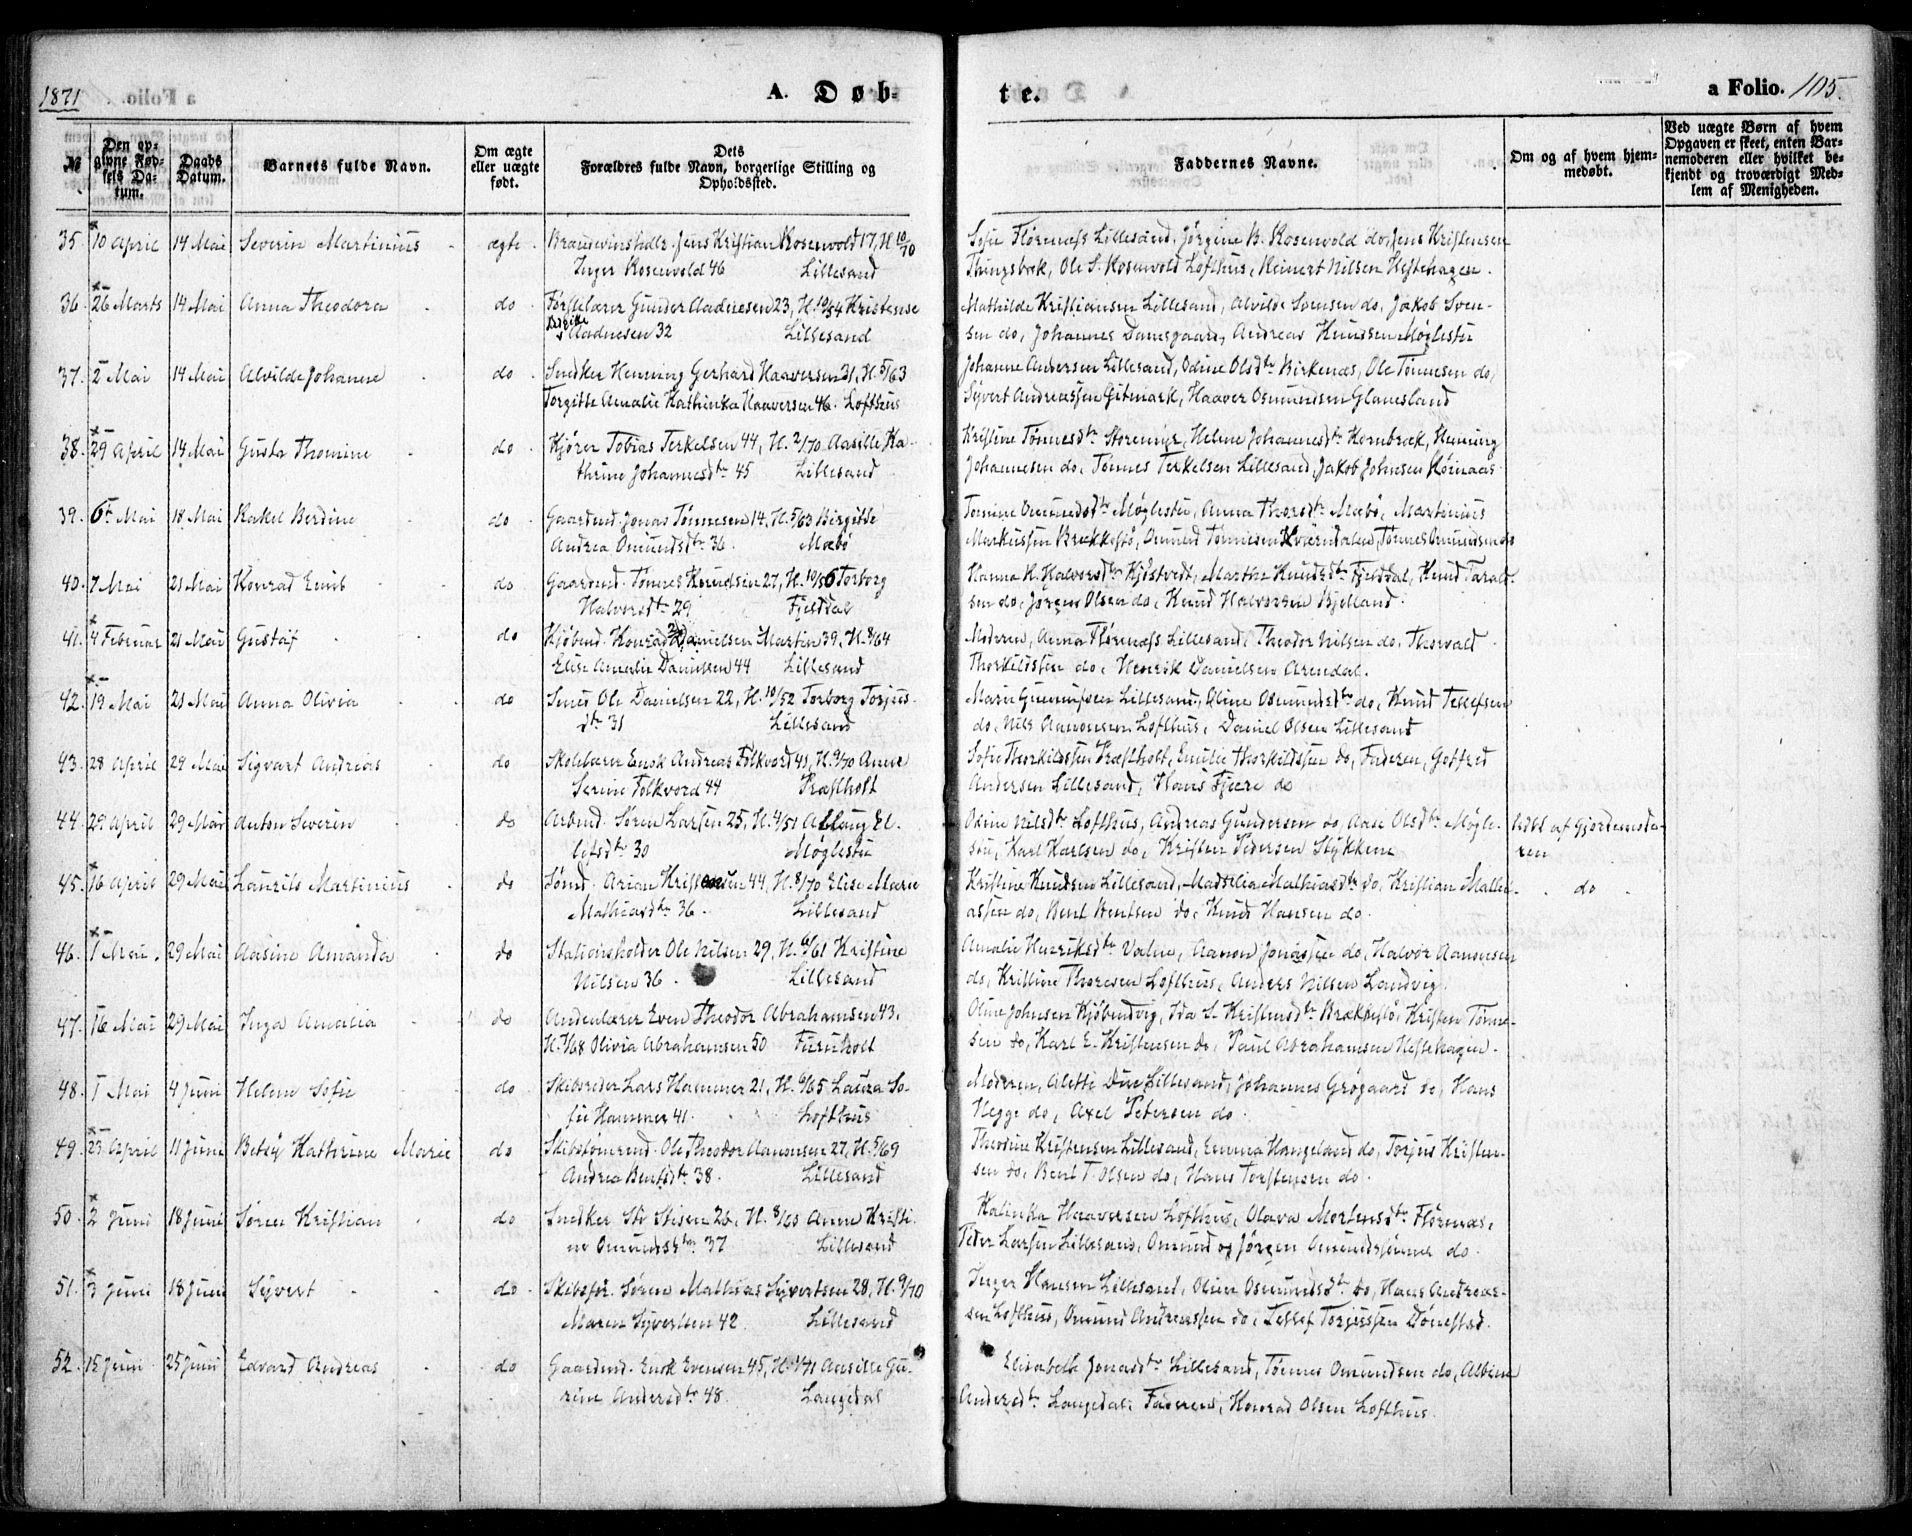 1871
A. Døb-
te.
a Folio. 105.
№
Den opgivne Fødsels Datum.
Daabs Datum.
Barnets fulde Navn.
Om ægte eller uægte født.
Dets Forældres fulde Navn, borgerlige Stilling og Opholdssted.
Faddernes Navne.
Om og af hvem hjemmedøbt.
Ved uægte Børn af hvem Opgaven er skeet, enten Barnemoderen eller hvilket bekjendt og troværdigt Medlem af Menigheden.
35. 10 April 14 Mai Severin Martinius ægte Jens Kristian Rosenvold 17, H. 10/70
Inger Rosenvold 46 Lillesand
Lillesand, Jørgine B. Rosenvold do, Jens Kristensen
Ole S. Rosenvold Lofthus, Reinert Nilsen Hestehagen.
36. 26 Marts 14 Mai Anna Theodora do Gunder Aadnesen 23, H. 10/54 Kristense
Birgitte Aadnesen 32 Lillesand
Mathilde Kristiansen Lillesand, Alvilde Svensen do, Jakob Sven-
sen do, Johannes Damsgaard, Andreas Knudsen Møglestu
37. 2 Mai 14 Mai Alvilde Johanne do Snedker Henning Gerhard Haaversen 31, H. 5/63
Torgitte Amalie Kathinka Haaversen 46. Lofthus
Johanne Andersen Lillesand, Odine Olsdtr Birkenæs, Ole Tønnesen do,
Syvert Andreassen Gitmark, Haaver Osmundsen Glamsland
38. 29 April 14 Mai Gusta Thomine do Tobias Terkelsen 44, H. 2/70 Aasille Ka-
thrine Johannesdtr 45 Lillesand
Kristine Tønnesdtr Storemyr, Helene Johannesdtr Kornbrekk, Henning
Johannesen do, Tønnes Terkelsen Lillesand, Jakob Johnsen
39. 6 Mai 18 Mai Rakel Berdine do Gaardmd. Jonas Tønnesen 14, H. 5/63 Birgitte
Andrea Osmundsdtr 36. Mæbø
Tomine Osmundsdtr Møglestu, Anna Thorsdtr Mæbø, Martinius
Markussen Brækkestø, Osmund Tønnesen Kverndalen, Tønnes Osmundsen do
40. 7 Mai 21 Mai Konrad Emil do Gaardmd. Tønnes Knudsen 27, H. 10/56 Torborg
Halvorsdtr 29 Fjelddal
Hanna K. Halvorsdtr Kjøstvedt, Marthe Knudsdtr Fjelddal, Knud Tarald-
sen do, Jørgen Olsen do, Knud Halvorsen Bjelland.
41. 4 Februar 21 Mai Gustaf do Kjøbmd. Konrad Danielsen Martin 39, H. 8/64
Elise Amalie Danielsen 44 Lillesand
Moderen, Anna Lillesand, Theodor Nilsen do, Thorvald
Thorkildsen do, Henrik Danielsen Arendal.
42. 19 Mai 21 Mai Anna Olivia do Smed Ole Danielsen 22, H. 10/52 Torborg Torjus-
dtr 31 Lillesand
Marie Gunnufsen Lillesand, Oline Osmundsdtr do, Knud Tellefsen
do, Nils Aanonsen Lofthus, Daniel Olsen Lillesand
43. 28 April 29 Mai Sigvart Andreas do Skolelærer Enok Andreas Folkvord 41, H. 9/70 Anne
Serine Folkvord 44 Præstholt
Sofie Thorkildsen Præstholt, Emilie Thorkildsen do, Faderen, Gotfred
Andersen Lillesand, Hans Fjære do
44. 29 April 29 Mai Anton Severin do Arbmd. Søren Larsen 25, H. 4/51 Aslaug El-
lefsdtr 30 Møglestu
Odine Nilsdtr Lofthus, Andreas Gundersen do, Aase Olsdtr Møgle-
stu, Karl Karlsen do, Kristen Pedersen Stykkene
døbt af Gjordemode-
ren
45. 16 April 29 Mai Laurits Martinius do Sømd. Arian Kristensen 44, H. 8/70 Elise Marie
Mathiasdtr 36. Lillesand
Kristine Knudsen Lillesand, Mathiasdtr do, Kristian Mathi-
assen do, Bent Bentsen do, Knud Hansen do.
do
46. 1 Mai. 29 Mai Aasine Amanda do Stationsholder Ole Nilsen 29, H. 6/61 Kristine
Nilsen 36. Lillesand
Amalie Henriksdtr Vahne, Aanon Jonassen do, Halvor Aanonsen
do, Kristine Thoresen Lofthus, Anders Nilsen Landvig.
47. 16 Mai 29 Mai Inga Amalia do Even Theodor Abrahamsen 43,
H. 1/68 Olivia Abrahamsen 50 Furuholt
Oline Johnsen Kjøbmdvig, Ida S. Kristensdtr Brækkestø, Kristen Tønne-
sen do, Karl E. Kristensen do, Paul Abrahamsen Hestehagen.
48. 1 Mai 4 Juni Helene Sofie do Skibsreder Lars Hammer 21, H. 6/65 Laura So-
fie Hammer 41. Lofthus
Moderen, Alette Due Lillesand, Johannes Grøgaard do, Hans
Hegge do, Axel Petersen do.
49. 23 April 11 Juni Betsy Kathrine Marie do Skibstømrmd. Ole Theodor Aanonsen 27, H. 5/69
Andrea Bentsdtr 38. Lillesand
Theodine Kristensen Lillesand, Emma Hangeland do, Torjus Kristen-
sen do, Bent T. Olsen do, Hans Torstensen do.
50. 2 Juni 18 Juni Søren Kristian do Snedker 26, H. 8/65 Anne Kristi-
ne Osmundsdtr 37 Lillesand
Katinka Haaversen Lofthus, Olava Mortensdtr
Peder Larsen Lillesand, Osmund og Jørgen do.
51. 3 Juni 18 Juni Syvert do Skibsfør. Søren Mathias Syvertsen 28, H. 9/70
Maren Syvertsen 42 Lillesand
Inger Hansen Lillesand, Oline Osmundsdtr do, Hans Andreas-
sen Lofthus, Osmund Andreassen do, Tellef Torjussen Dønestad.
52. 15 Juni 25 Juni Edvard Andreas do Gaardmd. Enok Evensen 45, H. 1/71 Aasille Gu-
rine Andersdtr 48. Langedal
Elisabeth Jonasdtr Lillesand, Tønnes Osmundsen do, Albine
Andersdtr Langedal, Faderen, Konrad Olsen Lofthus.